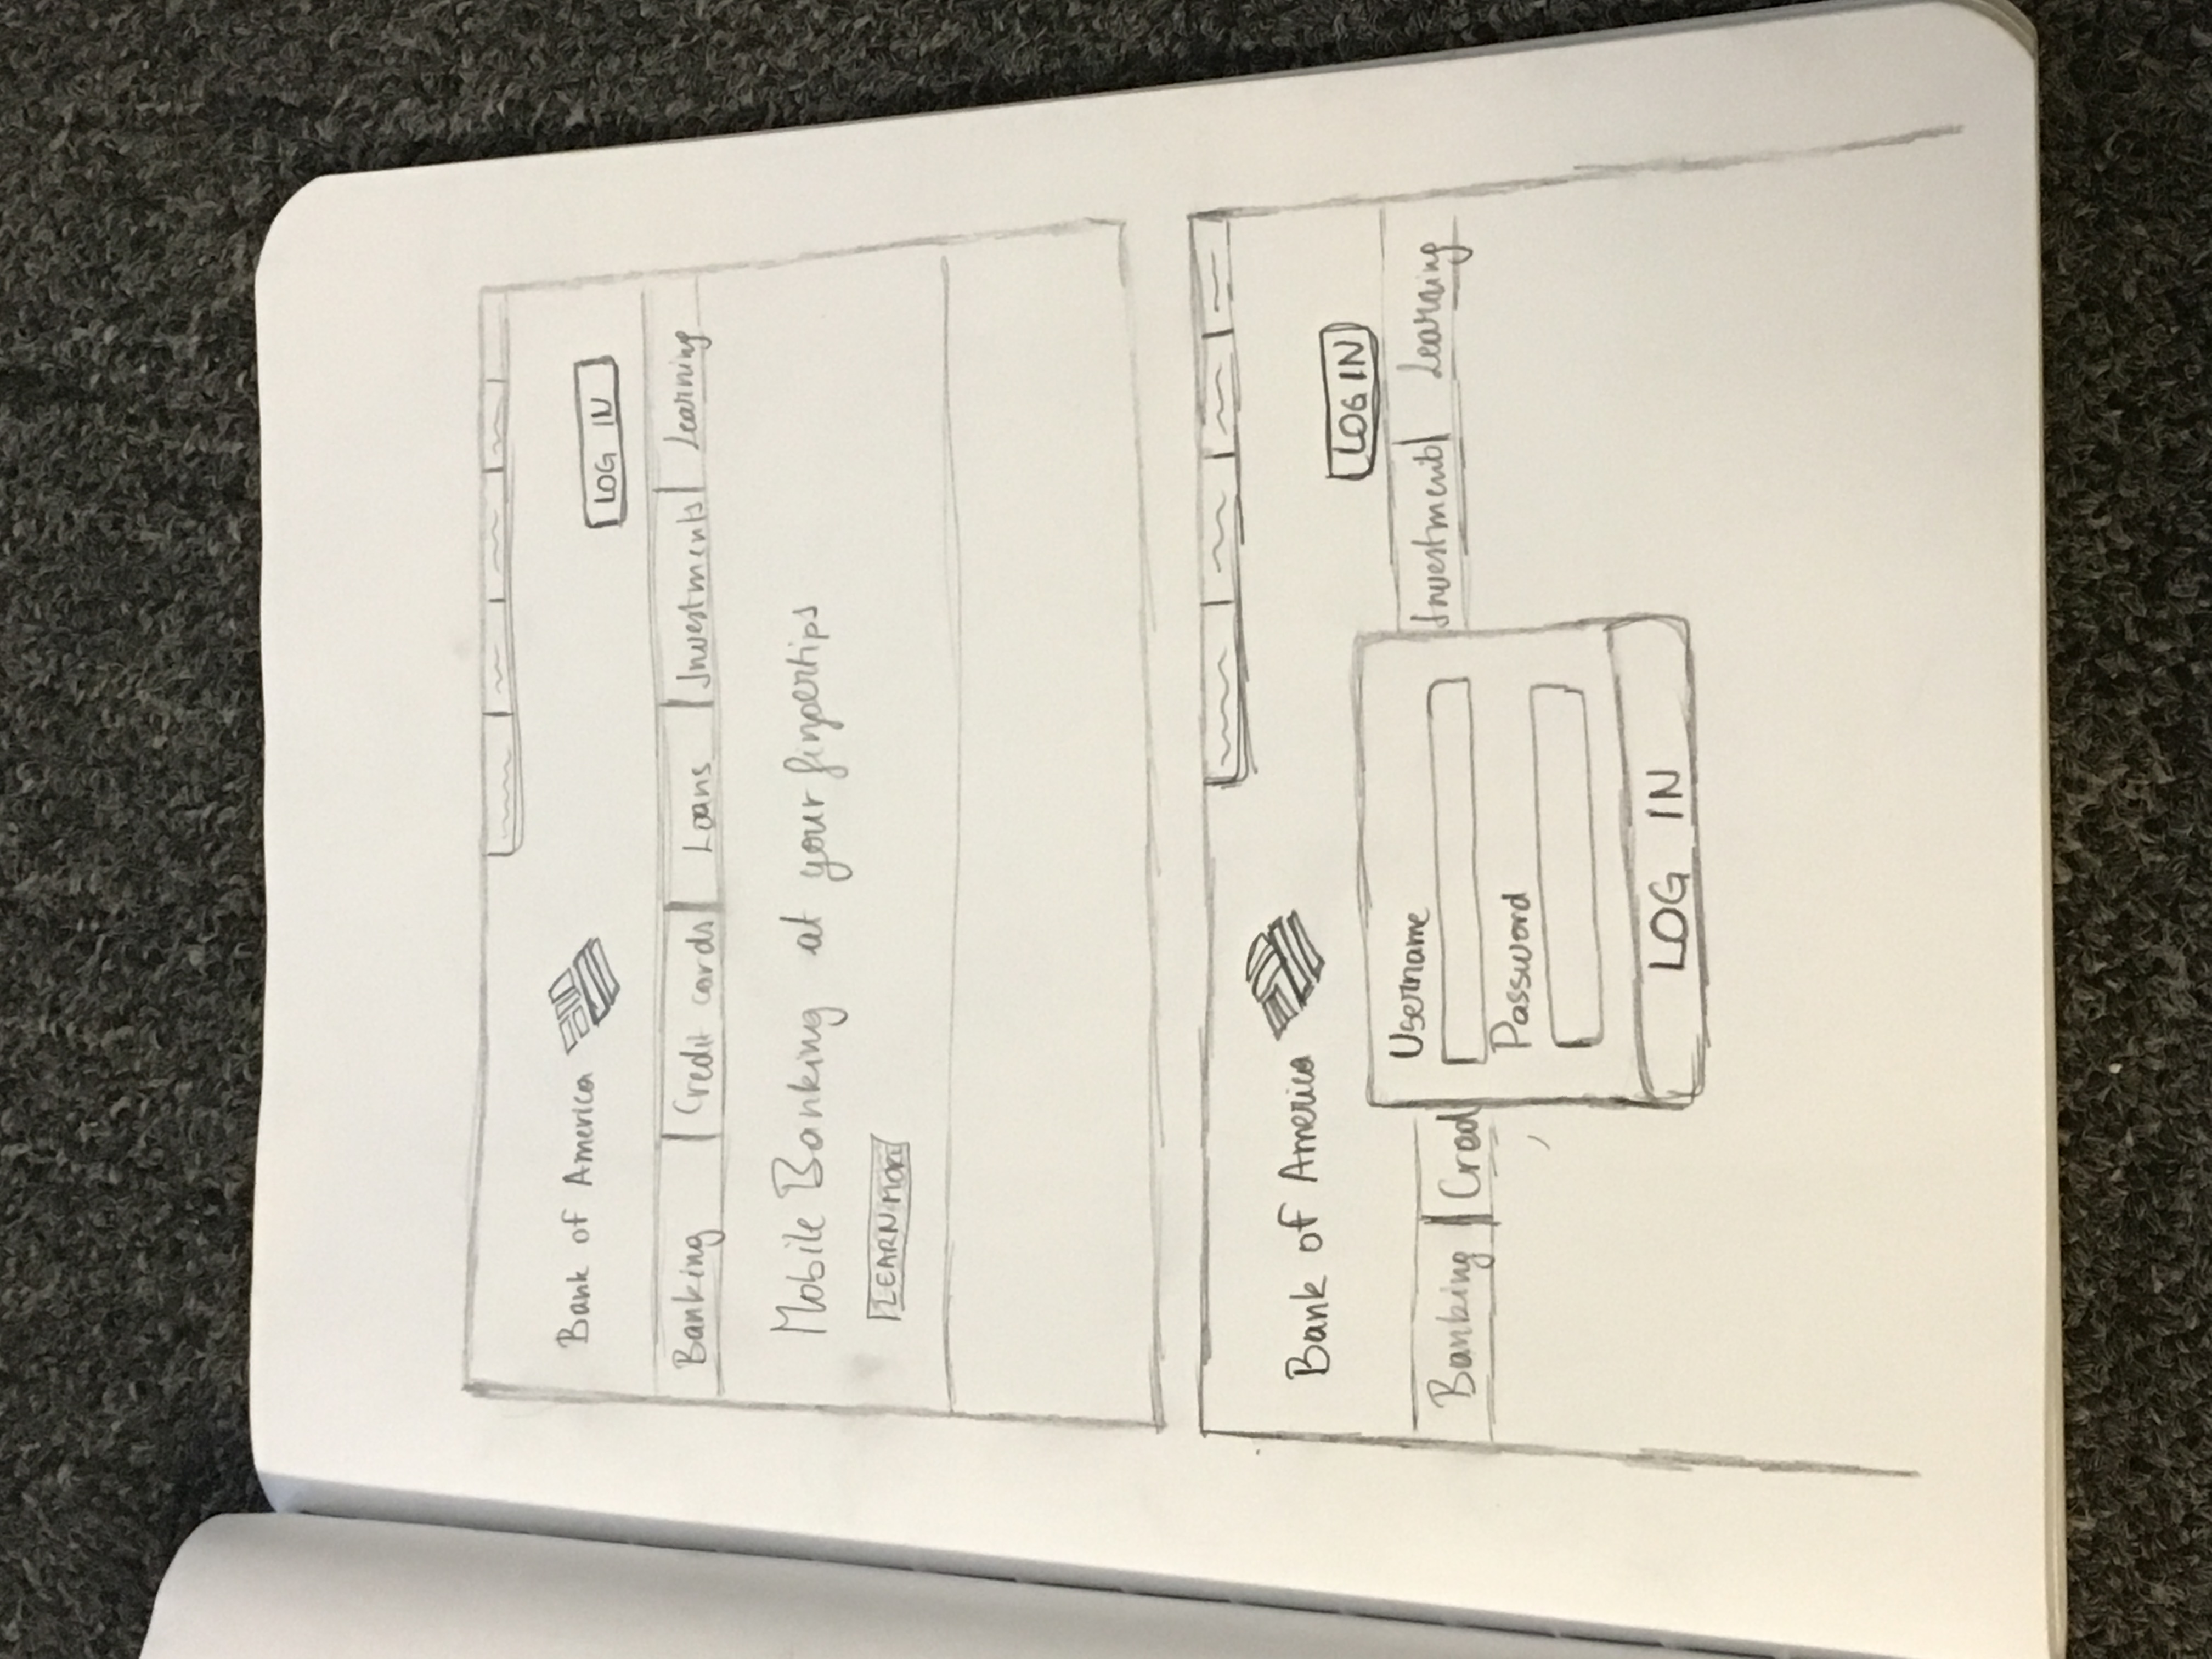 Bank of America
LOG IN
Banking Credit cards Loans Investments Learning
Mobile Banking at your fingertips
LEARN MORE
Bank of America
LOG IN
Banking Cred Investment Learning
Username
Password
LOG IN